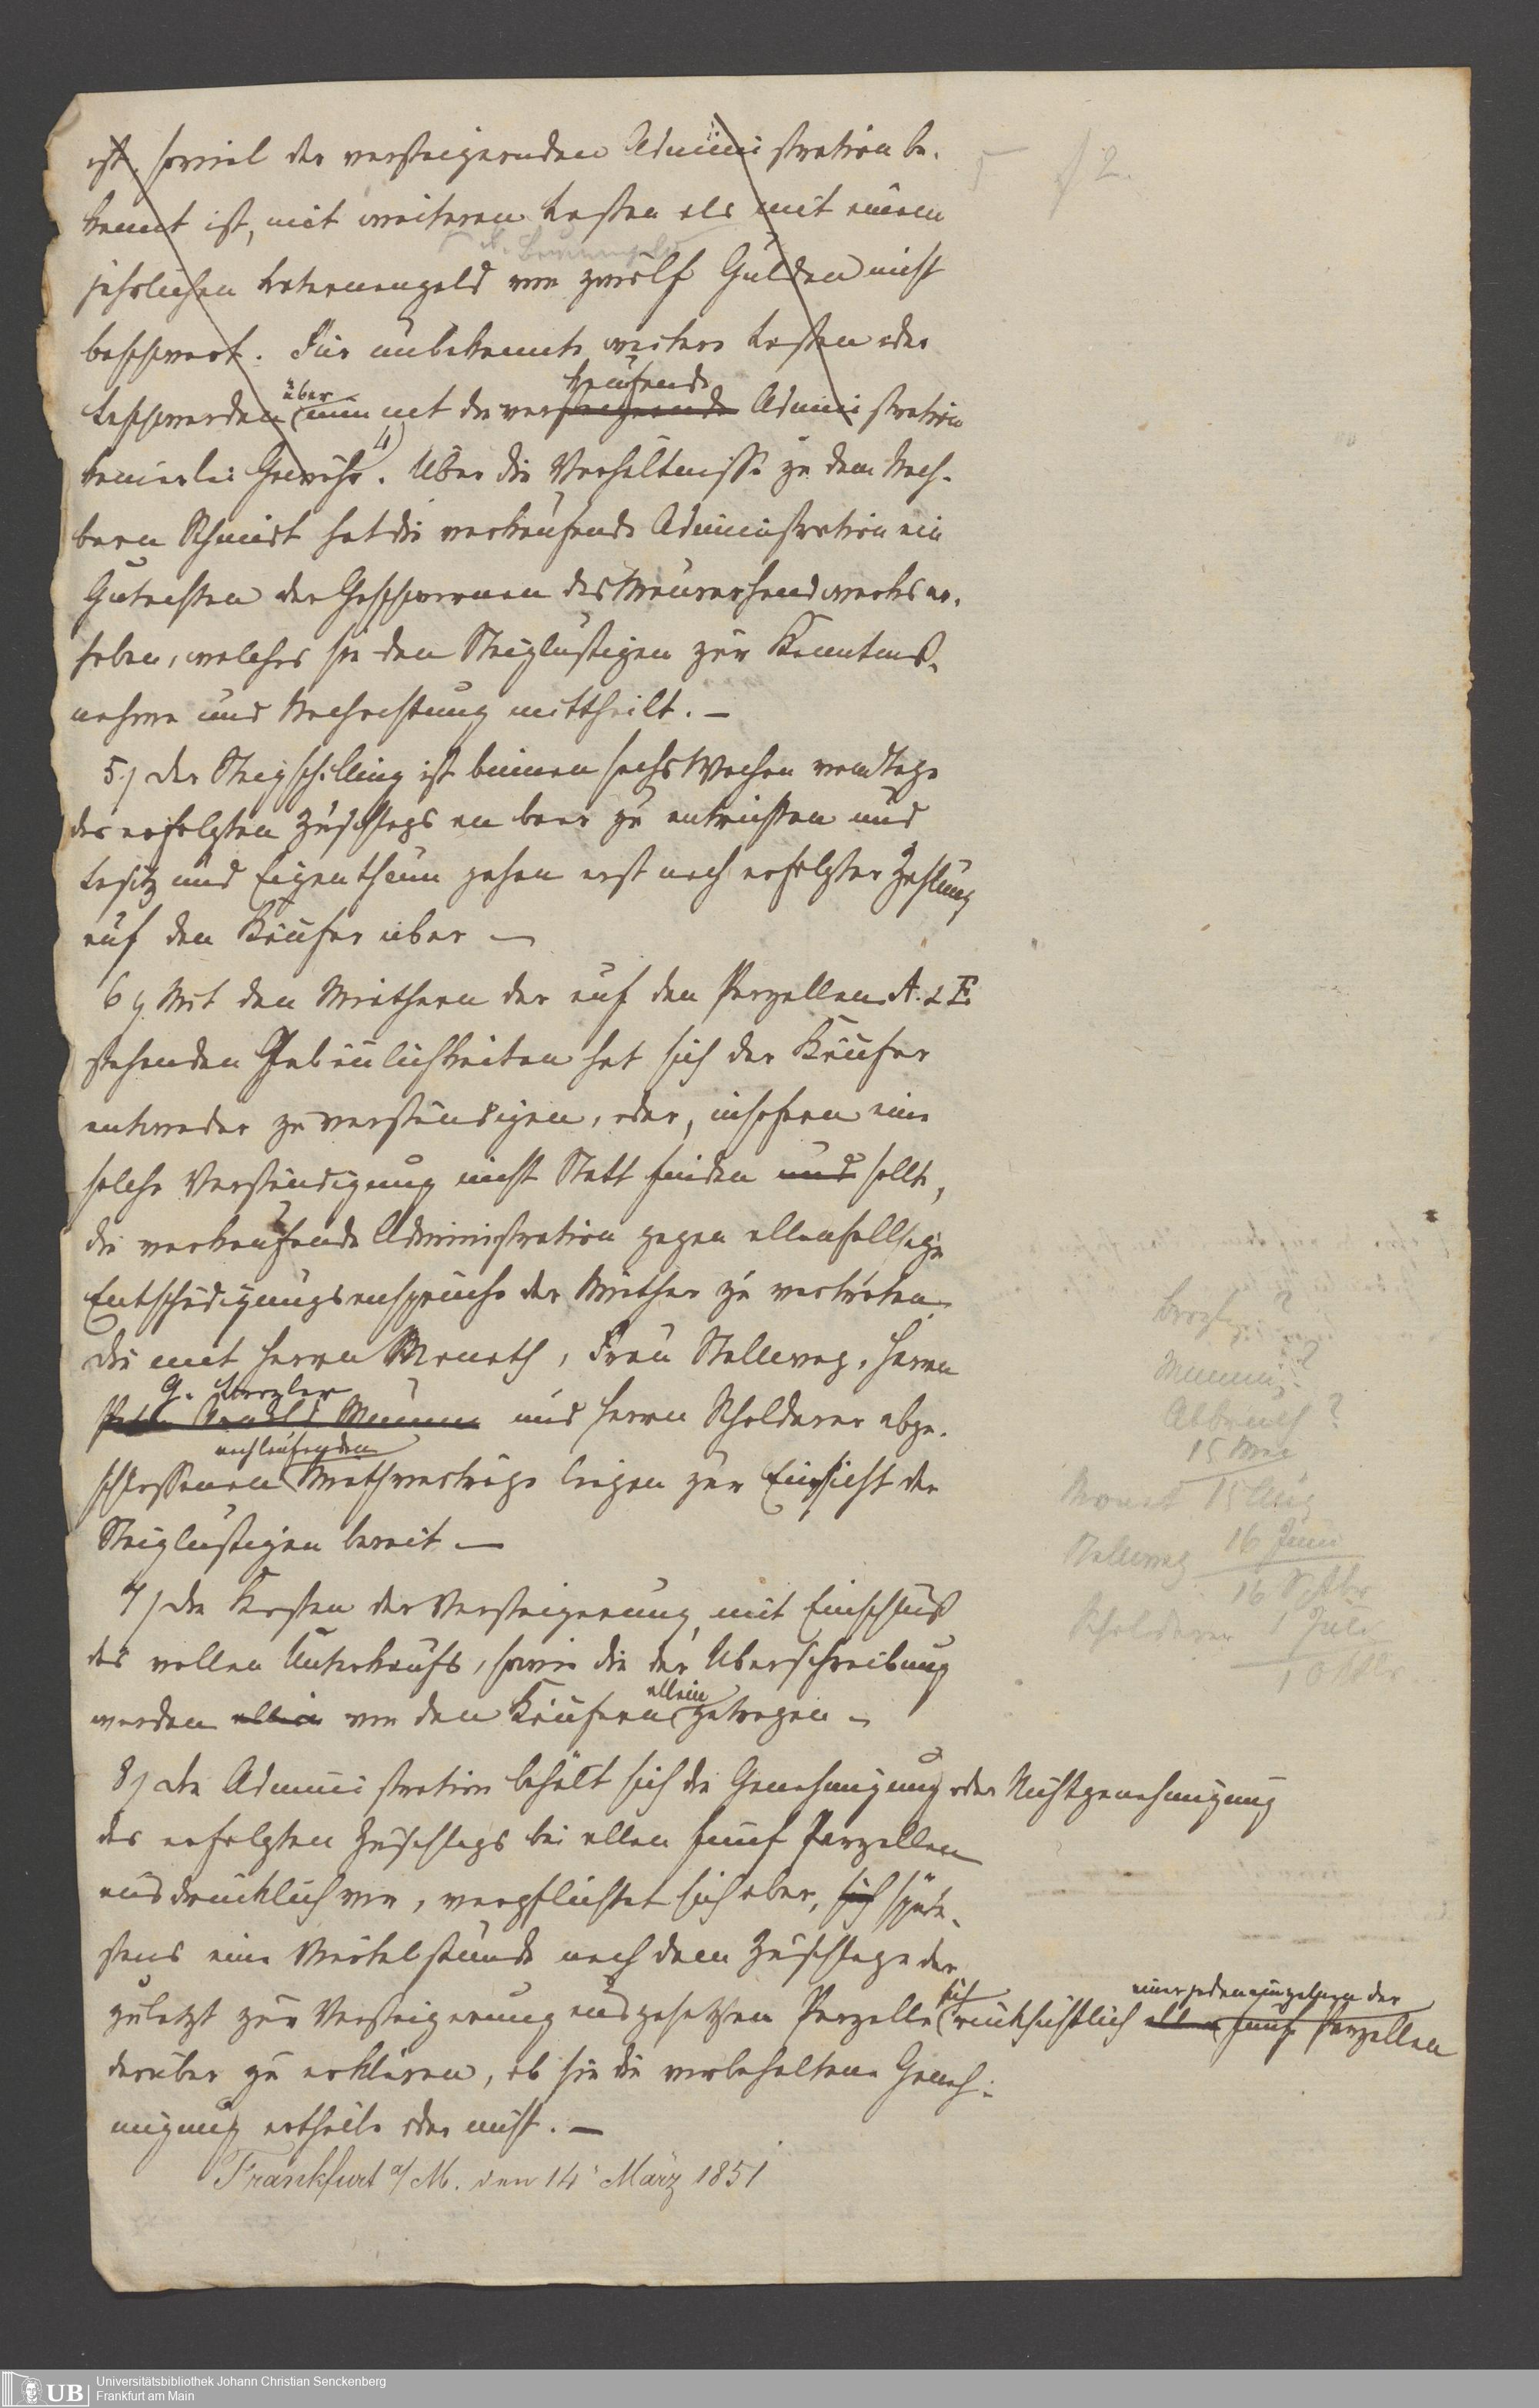 ist, soviel der versteigernden Administration be-
kannt ist, mit weiteren Lasten als mit einem
jährlichen Laternengeld von zwölf Gulden nicht
beschwert. Für unbekannte weitere Lasten oder
über kaufende
Beschwerden nimmt die versteigernde Administration
4)
keinerlei Gewähr. Über die Verhältnisse zu dem Nach-
barn Schmidt hat die verkaufende Administration ein
Gutachten der Geschwornen des Maurerhandwerks er-
hoben, welches sie den Steiglustigen zur Kenntniß-
nahme und Nachachtung mittheilt. —
5.) Der Steigschilling ist binnen sechs Wochen vom Tage
des erfolgten Zuschlags an baar zu entrichten und
Besitz und Eigenthum gehen erst nach erfolgter Zahlung
auf den Käufer über —
6) Mit den Miethern der auf den Parzellen A. & E.
stehenden Gebäulichkeiten hat sich der Käufer
entweder zu verständigen, oder, insofern eine
solche Verständigung nicht Statt finden und sollte,
die verkaufende Administration gegen allenfallsige
Entschädigungsansprüche der Miether zu vertreten.
Die mit Herrn Monath, Frau Stellwag, Herrn
und Herrn Scholderer abge-
schlossenen Miethverträge liegen zur Einsicht der
Steiglustigen bereit. —
7) Die Kosten der Versteigerung, mit Einschluß
des vollen Unterkaufs, sowie die der Überschreibung
allein
werden allein von den Käufern getragen —
8) Die Administration behält sich die Genehmigung oder Nichtgenehmigung
des erfolgten Zuschlags bei allen fünf Parzellen
ausdrücklich vor, verpflichtet sich aber, sich späte-
stens eine Viertelstunde nach dem Zuschlage der
sich einer jeden einzelnen der
zuletzt zur Versteigerung ausgesetzten Parzelle rücksichtlich aller fünf Parzellen
darüber zu erklären, ob sie die vorbehaltene Geneh-
migung ertheile oder nicht. —
Frankfurt a/M. den 14. März 1851
§ 2.
Abbruch?
15 Mai
Monat 15 Aug
Stellwag 16 Juni
16 Septbr
Scholderer 1 Juli
1 Oktbr
UB
Universitätsbibliothek Johann Christian Senckenberg
Frankfurt am Main